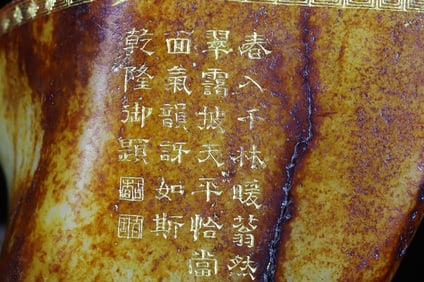 春入千林暖蓊然
翠靄披天平恰當
面氣韻訝如斯
乾隆御題